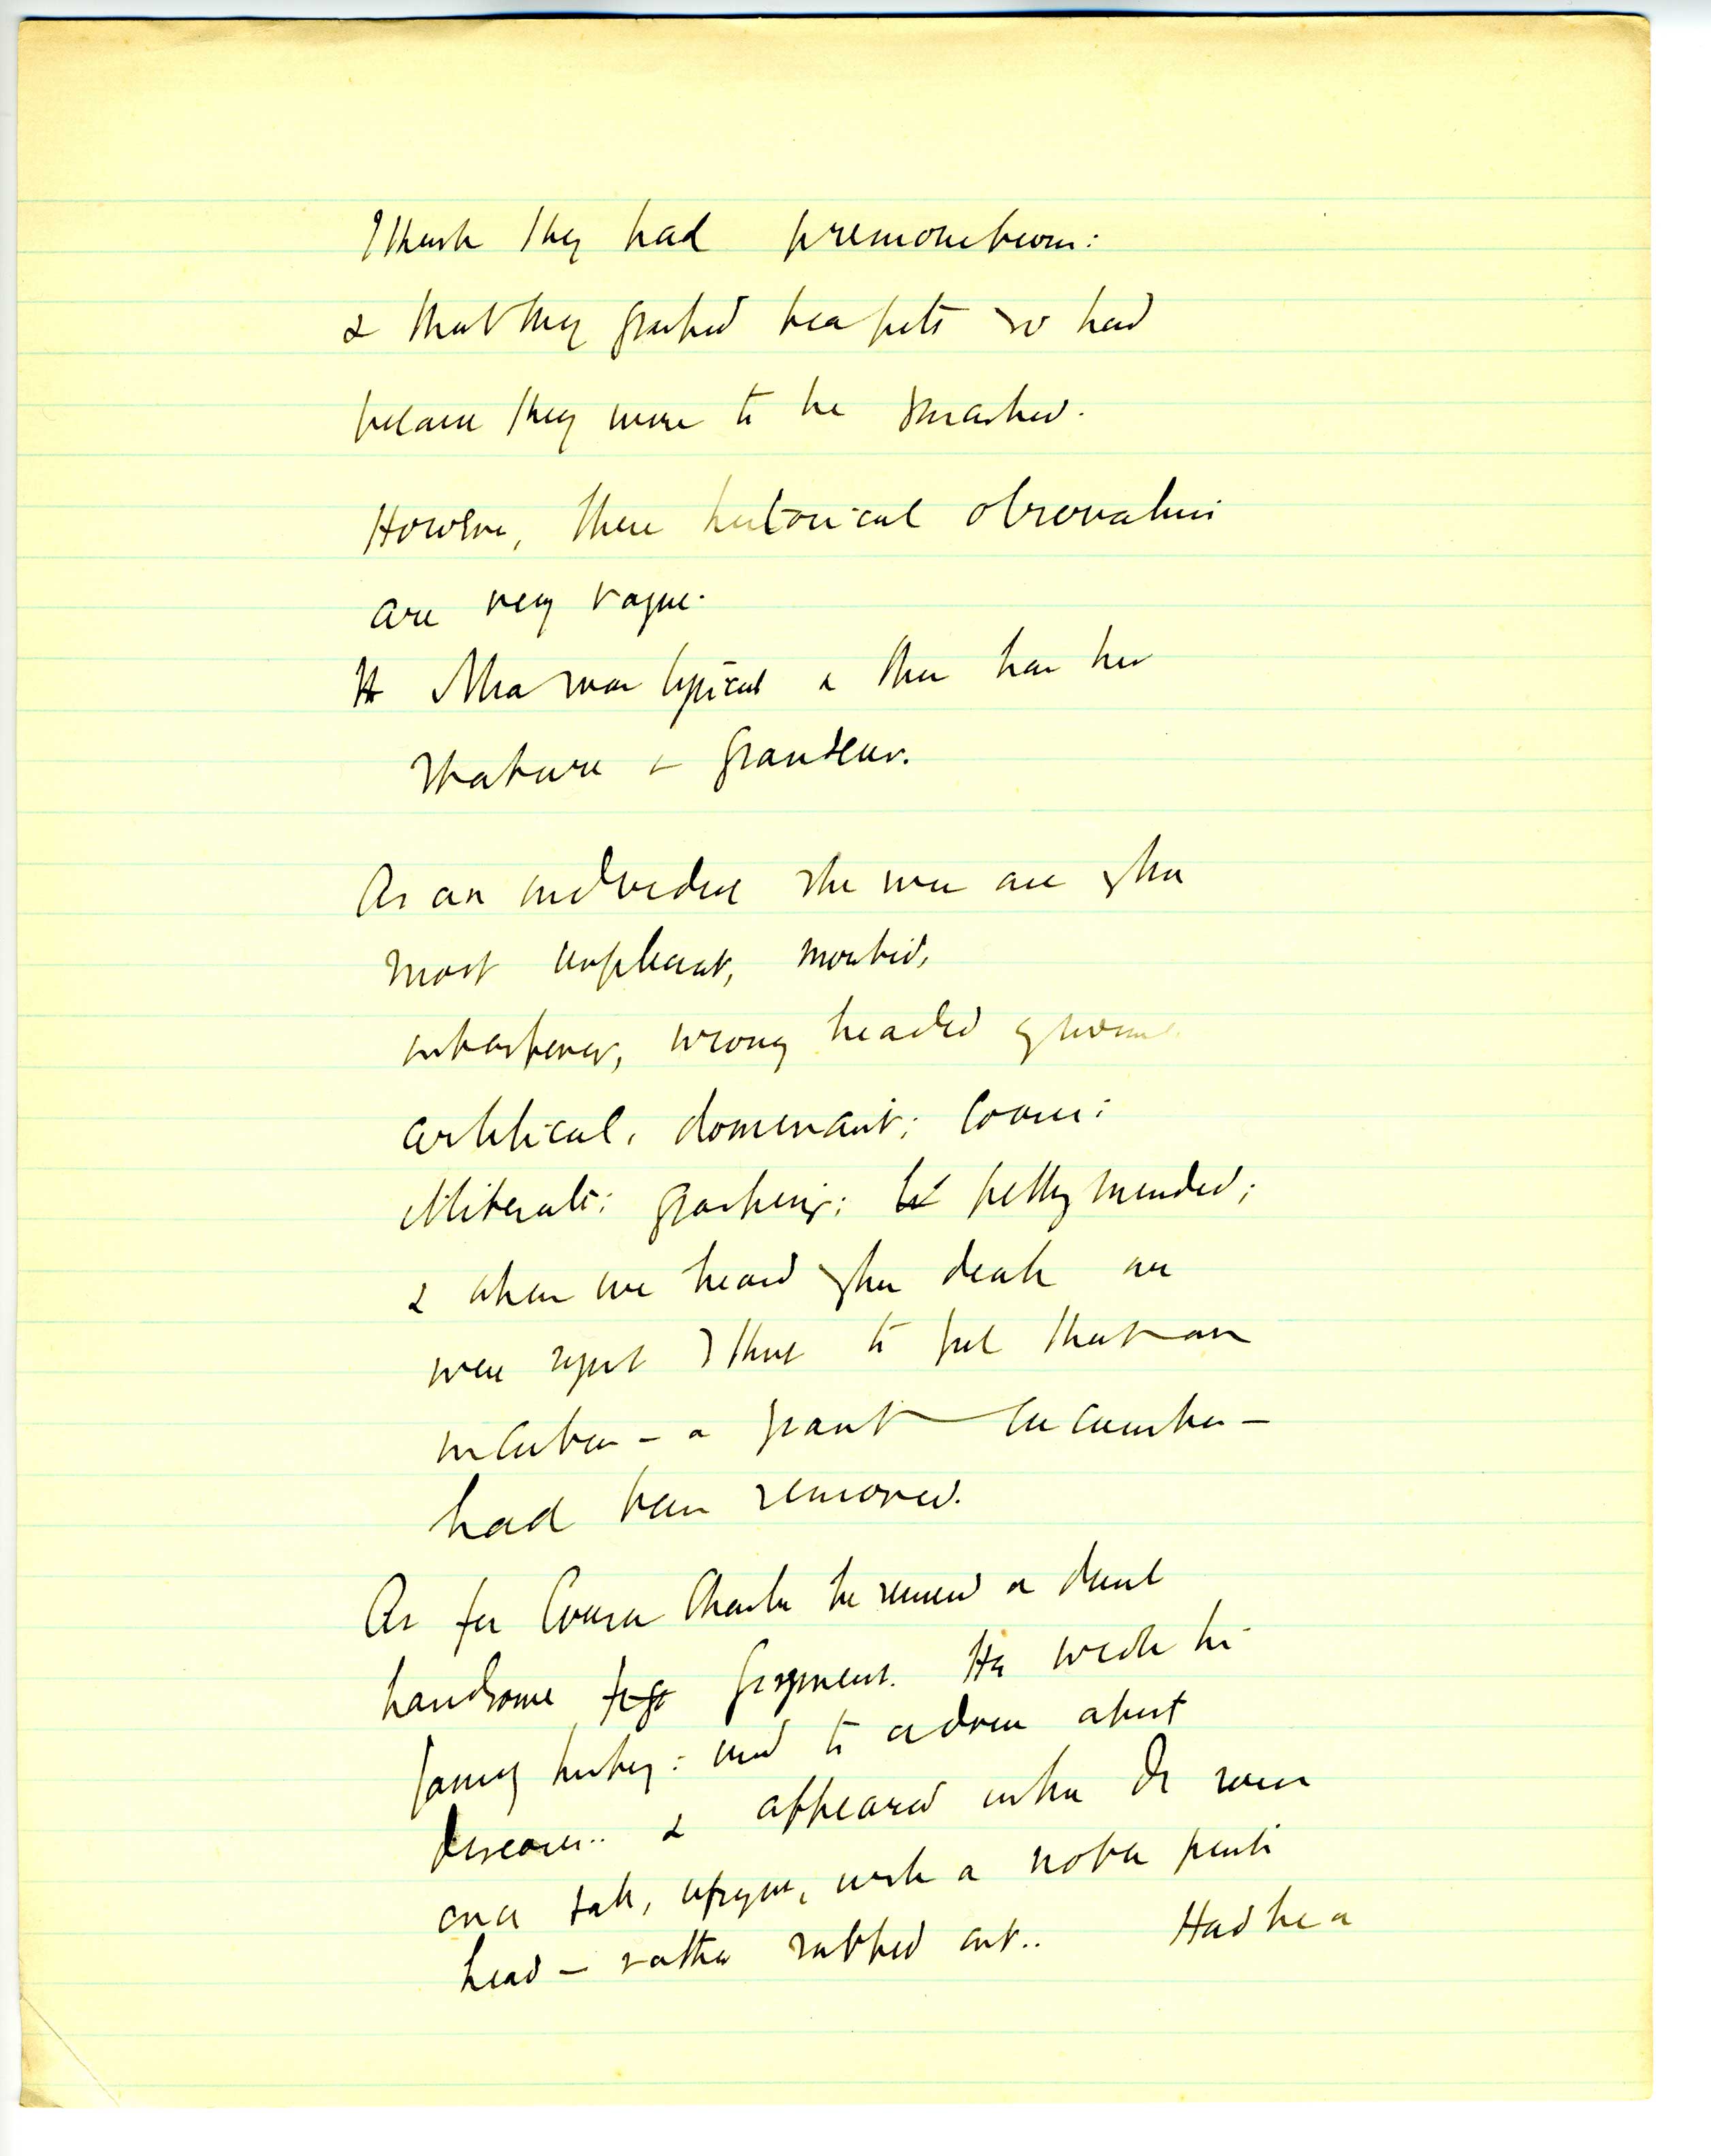 I think they had premonitions:
& that they grasped tea pots so hard
because they were to be smashed.
However, these historical observations
are very vague.
Mia was typical & thus has her
stature & grandeur.
As an individual she was one of the
most unpleasant, morbid,
wrong headed
critical, dominant; coarse:
illiterate; grasping; petty minded;
& when we heard of her death we
were apt I think to feel that an
incubus – a giant cucumber –
had been removed.
As for Cousin Charlie he seemed a dead
handsome figment. He wrote his
family history: used to advise about
diseases.. & appeared in the Dg room
once tall, with a noble
head – rather rubbed out.. Had he a